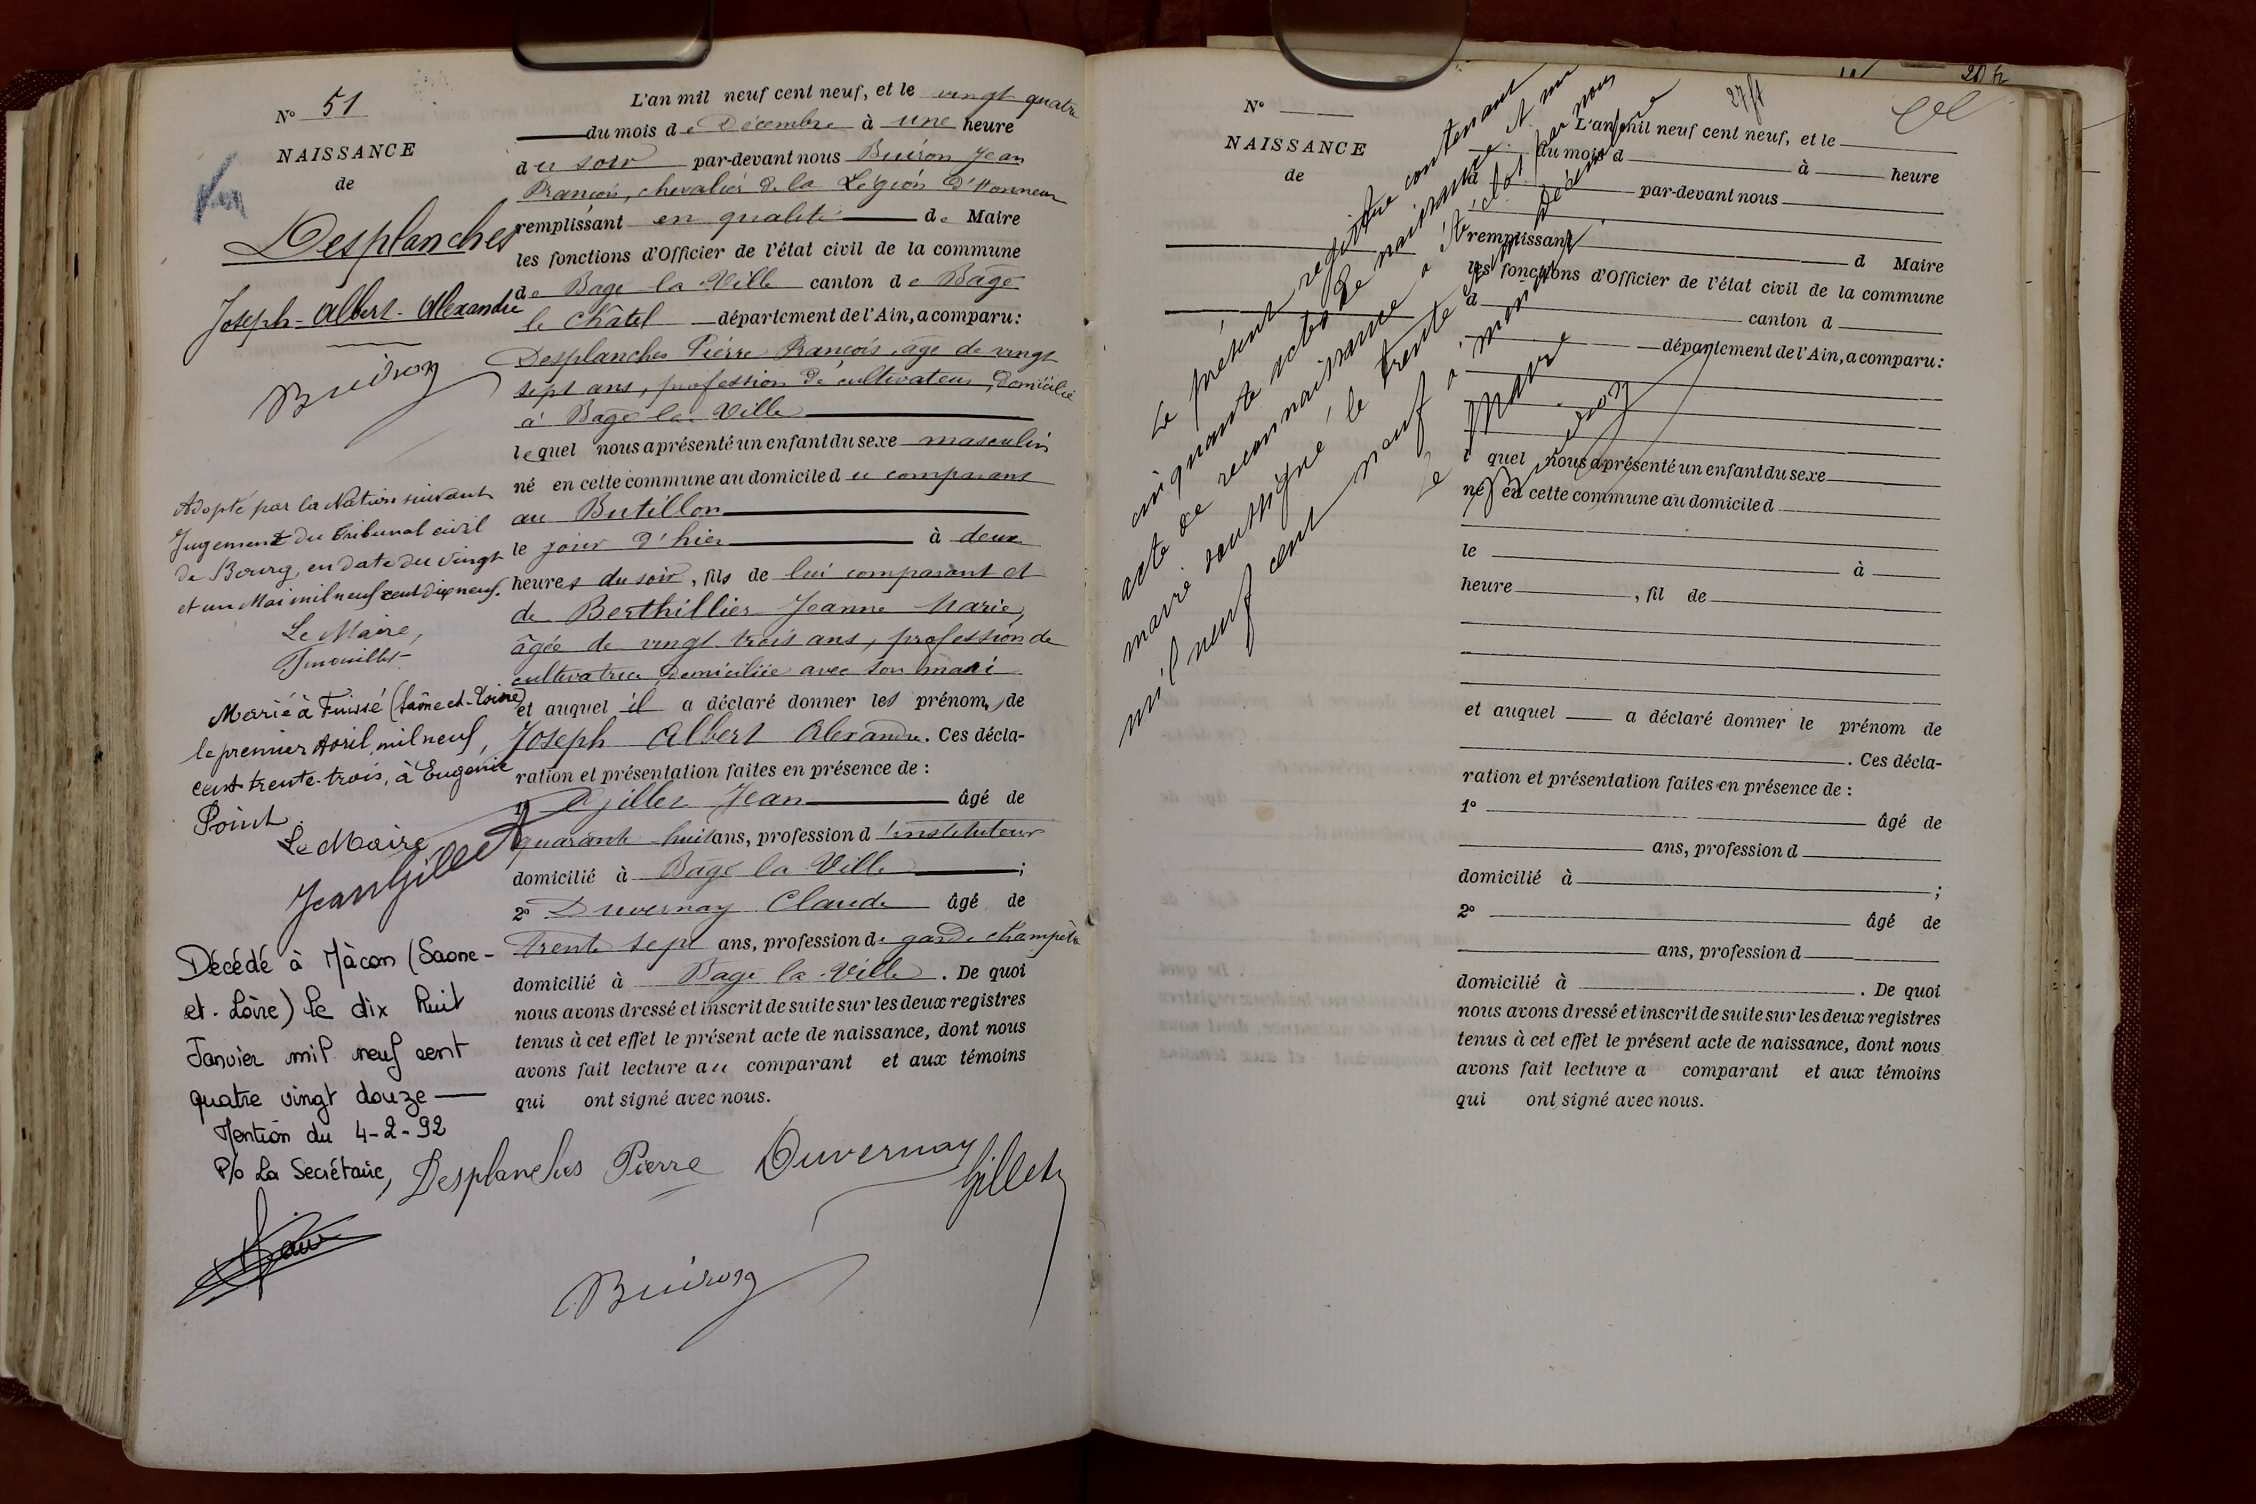 N° 51
NAISSANCE
de
Desplanches
Joseph-Albert-Alexandre
Buiron
Adopté par la Nation suivant
Jugement du Tribunal civil
de Bourg, en date du vingt
et un Mai mil neuf cent dix neuf.
Le Maire,
Marié à Fuissé (Saône-et-Loire)
le premier Avril mil neuf
cent trente-trois, à Eugénie
Point
Le Maire
Jean Gillet
Décédé à Mâcon (Saone-
et-Loire) le dix huit
Janvier mil neuf cent
quatre vingt douze —
Mention du 4-2-92
P/o La Secrétaire,
L'an mil neuf cent neuf, et le vingt quatre
du mois de Décembre à une heure
du soir par-devant nous Buiron Jean
François, chevalier de la Légion d'Honneur
remplissant en qualité de Maire
les fonctions d'Officier de l'état civil de la commune
de Bagé la Ville canton de Bagé
le Châtel département de l'Ain, a comparu :
Desplanches Pierre François, âgé de vingt
sept ans, profession de cultivateur, domicilié
à Bagé la Ville
lequel nous a présenté un enfant du sexe masculin
né en cette commune au domicile du comparant
au Butillon
le jour d'hier à deux
heures du soir, fils de lui comparant et
de Berthillier Jeanne Marie,
âgée de vingt trois ans, profession de
cultivatrice domiciliée avec son mari
et auquel il a déclaré donner les prénoms de
Joseph Albert Alexandre. Ces décla-
ration et présentation faites en présence de :
1° Gillet Jean âgé de
quarante huit ans, profession d'instituteur
domicilié à Bagé la Ville ;
2° Duvernay Claude âgé de
trente sept ans, profession de garde champêtre
domicilié à Bagé la Ville. De quoi
nous avons dressé et inscrit de suite sur les deux registres
tenus à cet effet le présent acte de naissance, dont nous
avons fait lecture au comparant et aux témoins
qui ont signé avec nous.
Desplanches Pierre Duvernay Gillet
Buiron
27/4
N°
NAISSANCE
de
Le présent registre contenant
cinquante actes de naissance et un
acte de reconnaissance a été clos par nous
maire soussigné, le trente un Décembre
mil neuf cent neuf à minuit.
Le Maire
Buiron
L'an mil neuf cent neuf, et le
du mois d à heure
par-devant nous
remplissant d Maire
les fonctions d'Officier de l'état civil de la commune
d canton d
département de l'Ain, a comparu :
quel nous a présenté un enfant du sexe
né en cette commune au domicile d
le à
heure , fil de
et auquel a déclaré donner le prénom de
. Ces décla-
ration et présentation faites en présence de :
1° âgé de
ans, profession d
domicilié à ;
2° âgé de
ans, profession d
domicilié à . De quoi
nous avons dressé et inscrit de suite sur les deux registres
tenus à cet effet le présent acte de naissance, dont nous
avons fait lecture a comparant et aux témoins
qui ont signé avec nous.